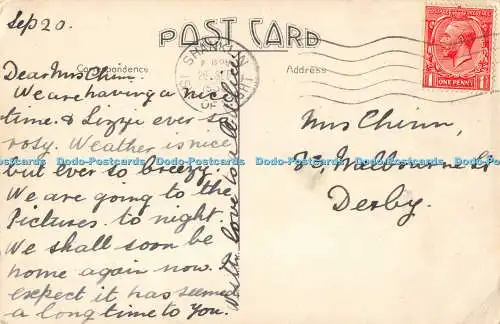 Sep 20.
POST CARD
Correspondence
Address
SHANKLIN
OF WIGHT
ONE PENNY
Dear Mrs Chinn.
We are having a nice
time. & Lizzie ever so
rosy. Weather is nice
but ever so breezy.
We are going to the
Pictures to night.
We shall soon be
home again now.
expect it has seemed
a long time to you.
With love to
Mrs Chinn,
83, Melbourne St
Derby.
Dodo-Postcards Dodo-Postcards Dodo-Postcards Dodo-Postcards Dodo-Postcards